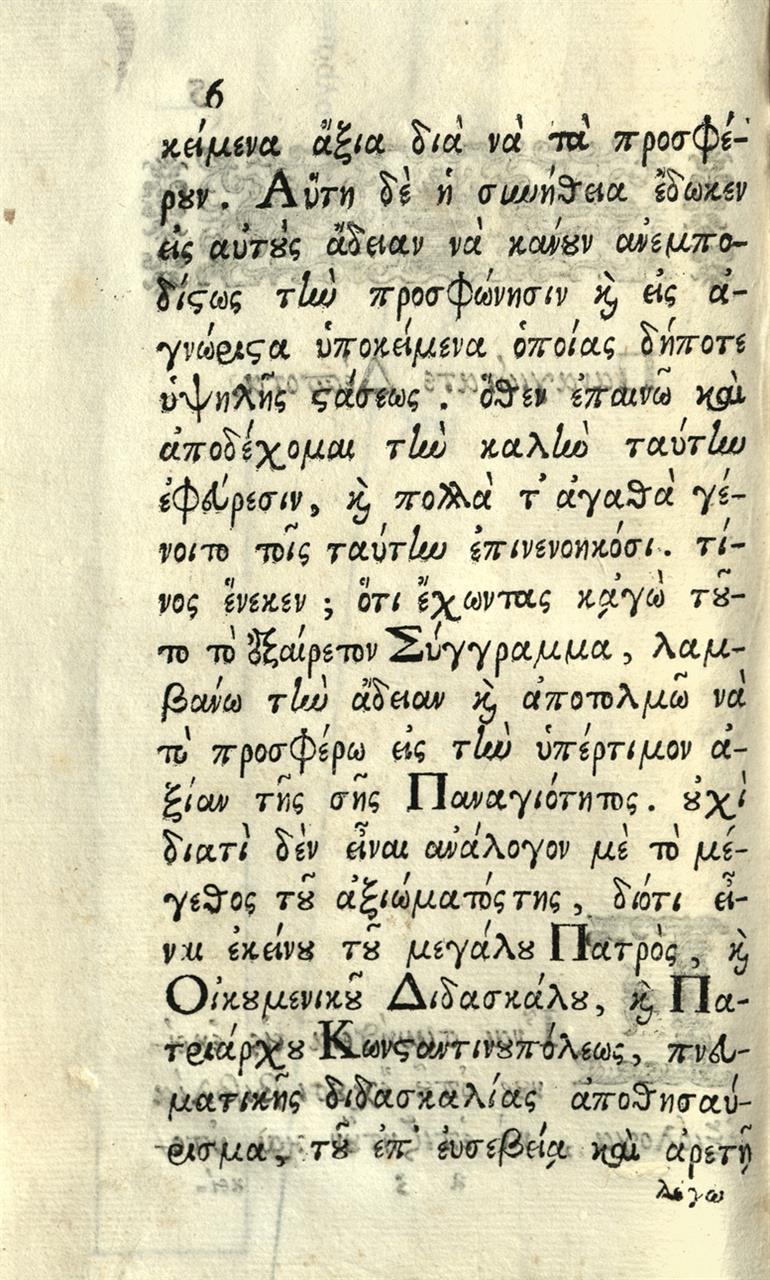 6
κείμενα ἄξια διὰ νὰ τὰ προσφέ-
ρȣν. Αὕτη δὲ ἡ συνήθεια ἔδωκεν
εἰς αὐτȣ́ς ἄδειαν νὰ κάνȣν ἀνεμπο-
δίϛως τὴν προσφώνησιν ϗ εἰς ἀ-
γνώριϛα ὑποκείμενα ὁποίας δήποτε
ὑψηλῆς ϛάσεως. ὅθεν ἐπαινῶ καὶ
ἀποδέχομαι τὴν καλὴν ταύτην
ἐφεύρεσιν, ϗ πολλὰ τ' ἀγαθὰ γέ-
νοιτο τοῖς ταύτην ἐπινενοηκόσι. τί-
νος ἕνεκεν; ὅτι ἔχωντας κᾀγὼ τȣ͂-
το τὸ ἐξαίρετον Σύγγραμμα, λαμ-
βάνω τὴν ἄδειαν ϗ ἀποτολμῶ νὰ
τὸ προσφέρω εἰς τὴν ὑπέρτιμον ἀ-
ξίαν τῆς σῆς Παναγιότητος. ȣ̓χὶ
διατὶ δὲν εἶναι ἀνάλογον μὲ τὸ μέ-
γεθος τȣ͂ ἀξιώματός της, διότι εἶ-
ναι ἐκείνȣ τȣ͂ μεγάλȣ Πατρὸς, ϗ
Οἰκȣμενικȣ͂ Διδασκάλȣ, ϗ Πα-
τριάρχȣ Κωνϛαντινȣπόλεως, πνευ-
ματικῆς διδασκαλίας ἀποθησαύ-
ρισμα, τȣ͂ ἐπ' ἐυσεβείᾳ καὶ ἀρετῇ
λέγω